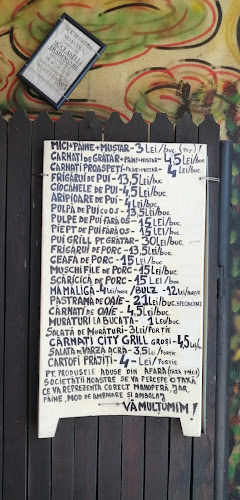 MICI+PÂINE+MUȘTAR-3LEI/BUC.
CÂRNAȚI DE GRĂTAR+PÂINE+MUȘTAR-4,5LEI/BUC.
CÂRNAȚI PROASPEȚI+PÂINE+MUȘTAR-4LEI/BUC.
FRIGĂRUI DE PUI-13,5LEI/BUC.
CIOCĂNELE DE PUI-4,5LEI/BUC.
ARIPIOARE DE PUI-4LEI/BUC.
PULPĂ DE PUI CU OS-13,5LEI/BUC.
PULPE DE PUI FĂRĂ OS-15LEI/BUC.
PIEPT DE PUI FĂRĂ OS-15LEI/BUC.
PUI GRILL PT. GRĂTAR-30LEI/BUC.
FRIGĂRUI DE PORC-13,5LEI/BUC.
CEAFĂ DE PORC-15LEI/BUC.
MUȘCHI FILE DE PORC-15LEI/BUC.
SCĂRICICĂ DE PORC-15LEI/BUC.
MĂMĂLIGĂ-4LEI/PORȚIE/BULZ-12LEI/PORȚIE
PASTRAMĂ DE OAIE-21LEI/BUC.
CÂRNAȚI DE OAIE-4,5LEI/BUC.
MURĂTURI LA BUCATĂ-1LEU/BUC
SALATĂ DE MURĂTURI-3LEI/PORȚIE
CÂRNAȚI CITY GRILL GROȘI-4,5LEI/
SALATĂ DE VARZĂ ACRĂ-3,5LEI/PORȚIE
CARTOFI PRĂJIȚI-4LEI/PORȚIE
PT. PRODUSELE ADUSE DIN AFARĂ (FĂRĂ MICI)
SOCIETĂȚII NOASTRE SE VA PERCEPE O TAXĂ
CE VA REPREZENTA CORECT MANOPERĂ, JAR,
PÂINE, MOD DE AMBOIARE ȘI AMBALAJ
VĂ MULȚUMIM!